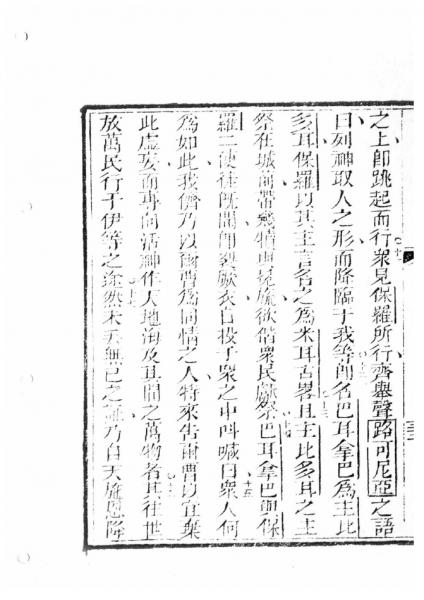 之上卽跳起而行衆見保羅所行齊舉聲路可尼亞之語
曰列神取人之形而降臨于我等卽名巴耳拿巴爲主比
多耳保羅以其主言名之爲米耳古畧且主比多耳之主
祭在城前帶犧牲冕旒欲偕衆民獻祭巴耳拿巴卽保
羅二使徒旣聞卽裂厥衣自投于衆之中呌喊曰衆人何
爲如此我儕乃以爾曹爲同情之人特來告爾曹以宜棄
此虛妄而專向活神作天地海及其間之萬物者其往世
放萬民行于伊等之途然未
無已之
乃自天施恩降